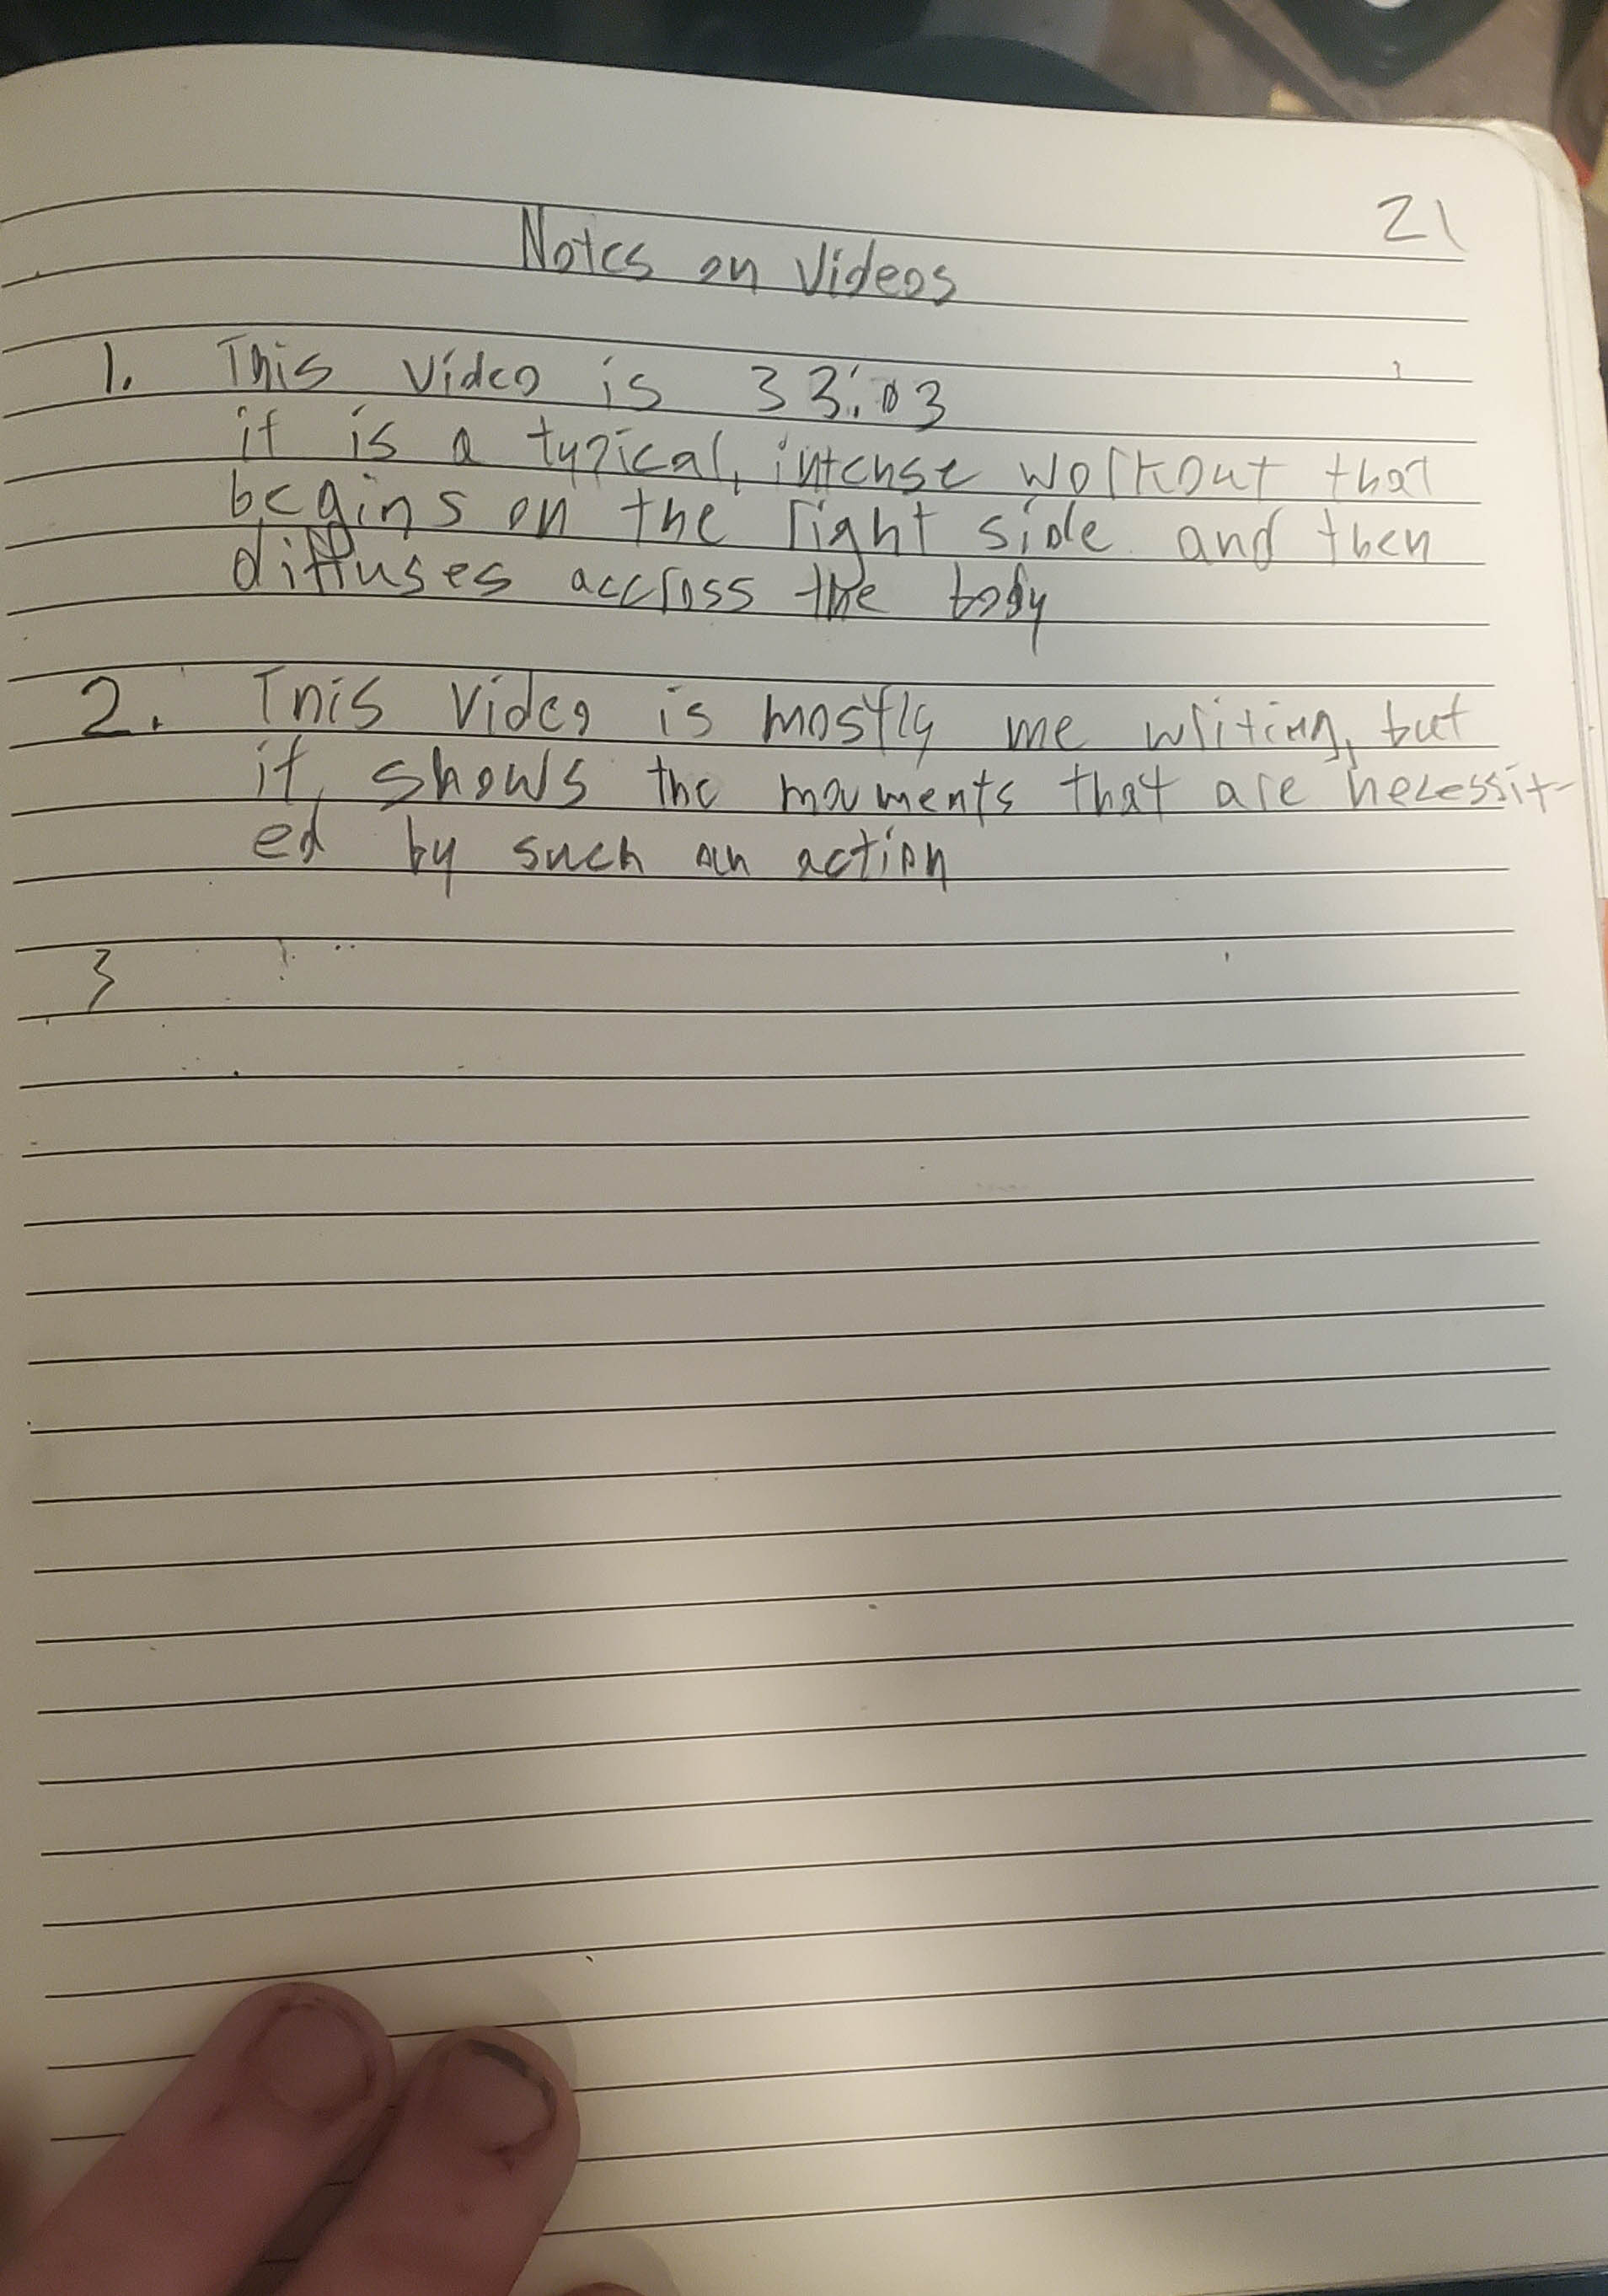 21
Notes on Videos
1. This video is 33:03
it is a typical, intense workout that
begins on the right side and then
diffuses accross the body
2. This video is mostly me writing, but
it shows the mouments that are necessit-
ed by such an action
3